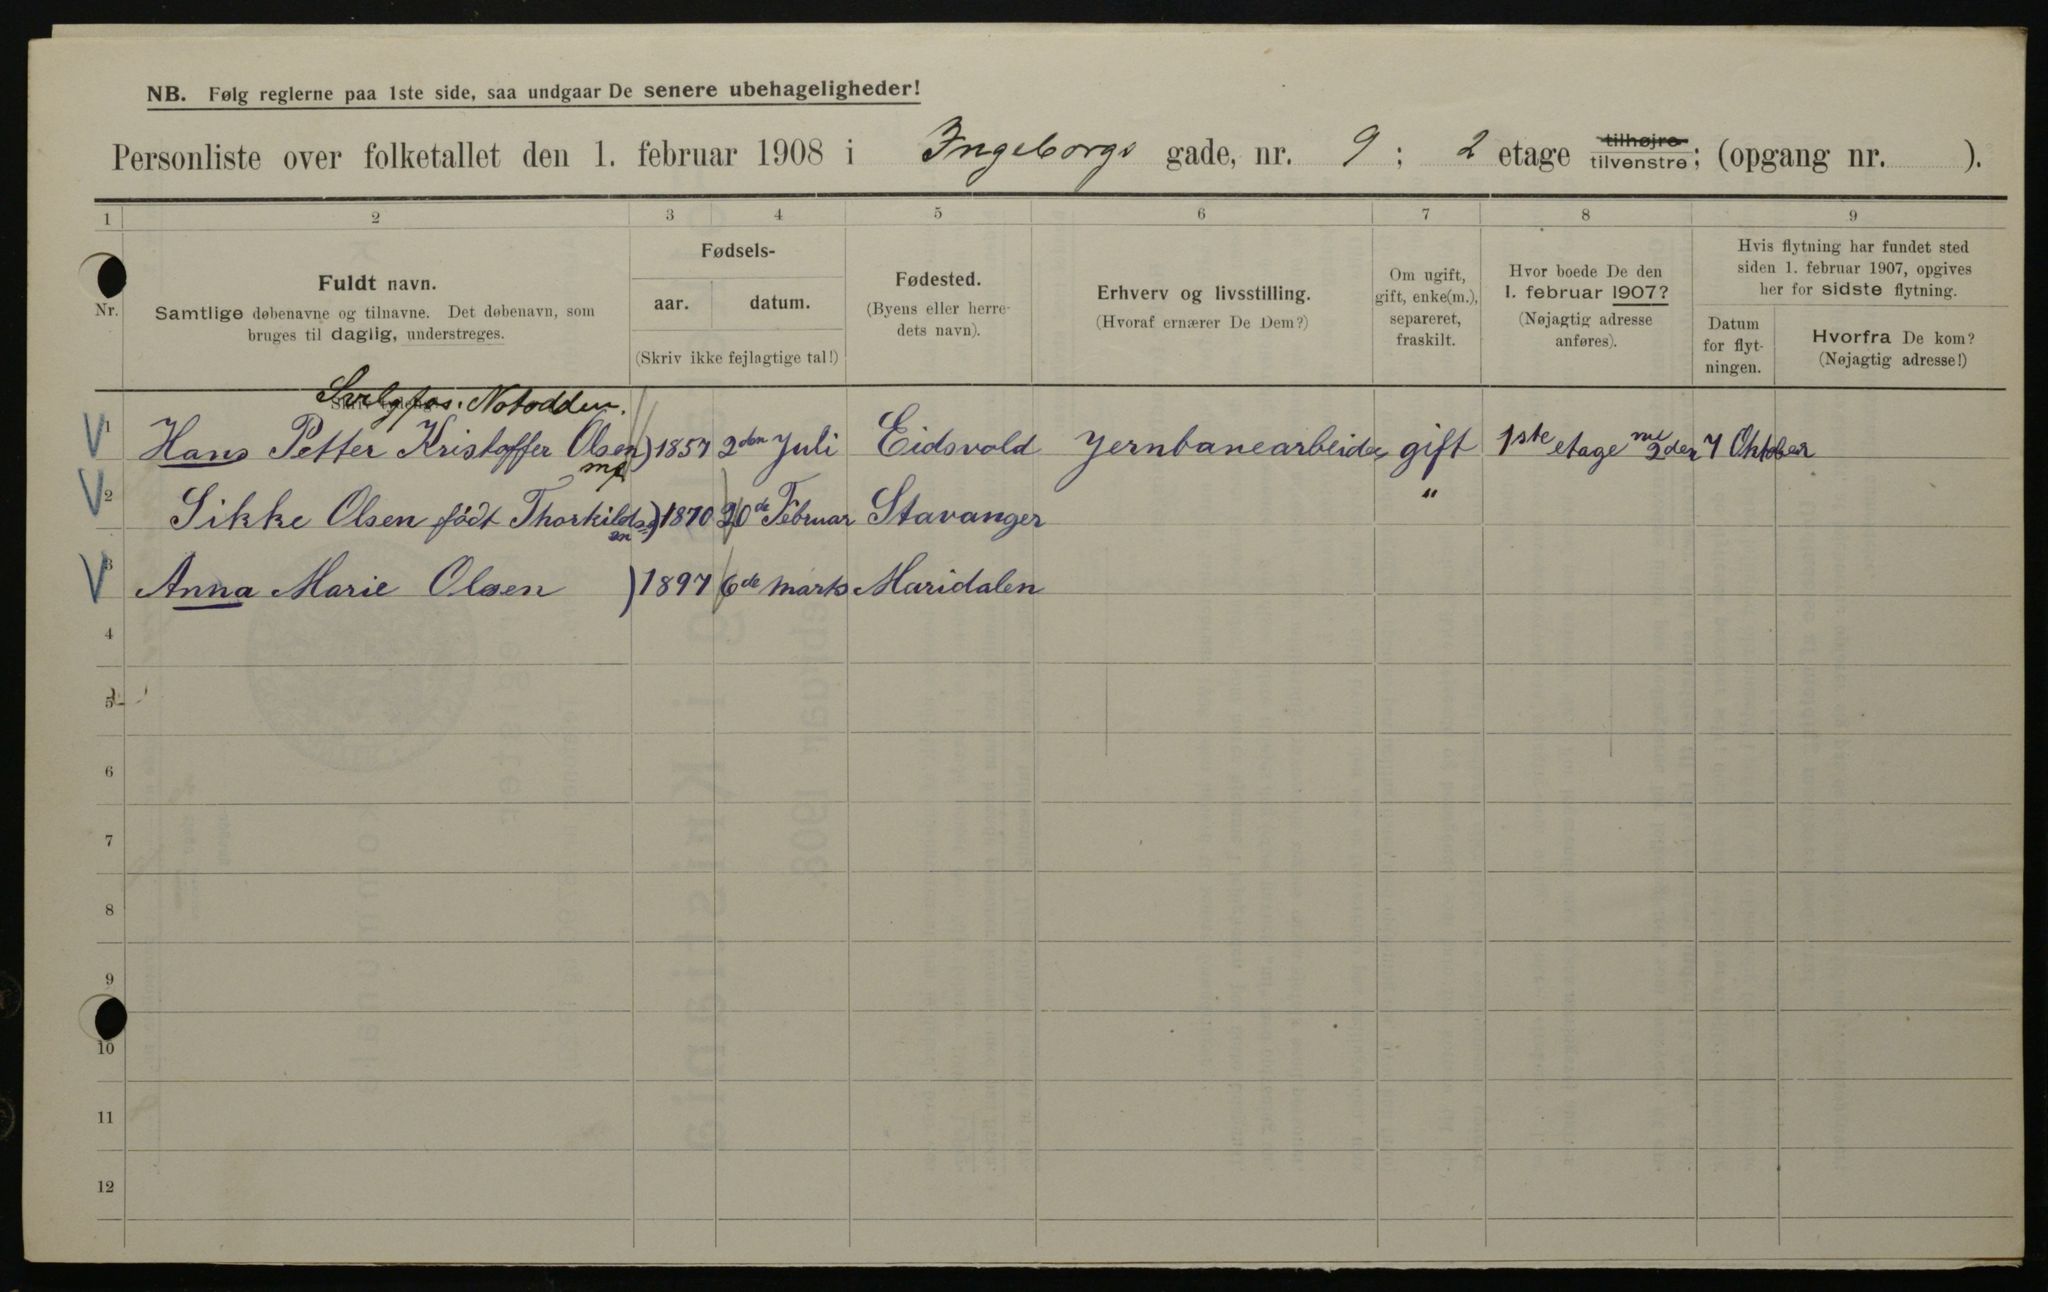 NB. Følg reglerne paa 1ste side, saa undgaar De senere ubehageligheder!
Personliste over folketallet den 1. februar 1908 i Ingeborgs gade, nr. 9; 2 etage tilhøjre tilvenstre; (opgang nr. ).
1 2 3 4 5 6 7 8 9
Nr.
Fuldt navn.
Samtlige døbenavne og tilnavne. Det døbenavn, som
bruges til daglig, understreges.
Fødsels-
aar. datum.
(Skriv ikke fejlagtige tal!)
Fødested.
(Byens eller herre-
dets navn).
Erhverv og livsstilling.
(Hvoraf ernærer De Dem?)
Om ugift,
gift, enke(m.),
separeret,
fraskilt.
Hvor boede De den
1. februar 1907?
(Nøjagtig adresse
anføres).
Hvis flytning har fundet sted
siden 1. februar 1907, opgives
her for sidste flytning.
Datum
for flyt-
ningen.
Hvorfra De kom?
(Nøjagtig adresse!)
Svelgfos. Notodden.
1 Hans Petter Kristoffer Olsen 1857 2den Juli Eidsvold Jernbanearbeider gift 1ste etage 2den 7 Oktober
2 Sikke Olsen födt Thorkildsen 1870 20de Februar Stavanger "
3 Anna Marie Olsen 1897 6de marts Maridalen
4
5
6
7
8
9
10
11
12